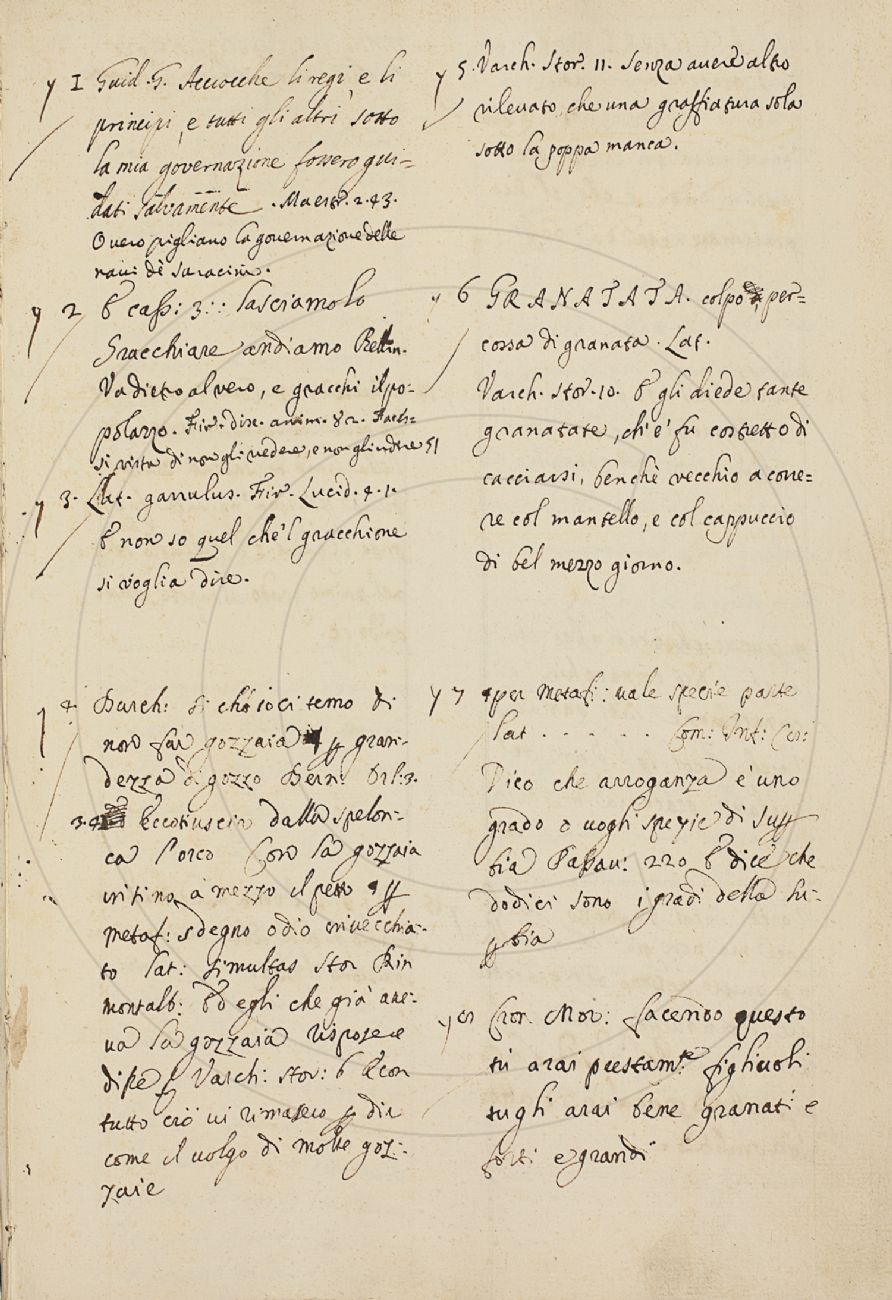 1 Guid. G. Acciocche li regi, e li
principi, e tutti gli altri sotto
la mia governazione fossero gui=
dati salvamente. Maestr. 2. 43.
Overo pigliano la governazione delle
navi de Saracini.
2 E cass: 3: : lasciamolo
Gracchiare andiamo
Va dietro al vero, e gracchi il po=
polazzo. Fir. disc. anim. 82. Facen=
si vista di non gli vedere, e non gli udire
3. Lat. garrulus. Fir. Lucid. 4. 1.
E non so quel che'l gracchione
si voglia dire.
4 Burch: Si ch'io ci temo di
non far gozzaia gran=
dezza di gozzo Bern: Orl: 3.
3. Eccoti uscir dalla spelon=
ca l'orco Con la gozzaia
insino a mezzo il petto
metaf: sdegno odio invecchia=
to lat: simultas Stor Rin
montalb: Ed egli che già ave=
va la gozzaia rispose e
disse Varch: Stor: 6 E con
tutto ciò vi rimasero p dir
come il volgo di molte goz=
zaie
5. Varch. Stor. 11. Senza avere altro
rilevato, che una graffiatura sola
sotto la poppa manca.
6 GRANATATA. colpo, per=
cossa di granata. Lat.
Varch. Stor. 10. E gli diede tante
granatate, ch'e' fu costretto di
cacciarsi, benchè vecchio a corre=
re col mantello, e col cappuccio
di bel mezzo giorno.
7 per metaf: vale specie parte
lat . . . . . . Com: Inf:
Dico che arroganza è uno
grado o vogli spezie di Sup
bia Passav: 220 E dice che
dodici sono i gradi della Su=
pbia
8 Cron. Mor: facendo questo
tu arai prestam.te figliuoli
tu gli arai bene granati e
forti e grandi